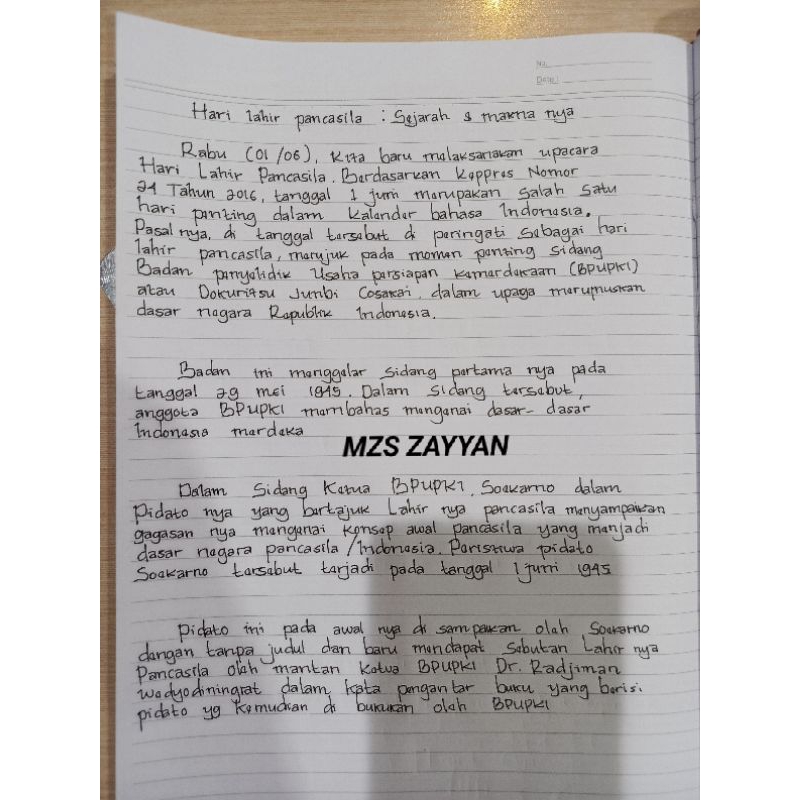 No.
Date:
Hari lahir pancasila : Sejarah & makna nya
Rabu (01/06), Kita baru melaksanakan upacara
Hari Lahir Pancasila. Berdasarkan Keppres Nomor
24 Tahun 2016, tanggal 1 juni merupakan salah satu
hari penting dalam kalender bahasa Indonesia.
Pasal nya, di tanggal tersebut di peringati sebagai hari
lahir pancasila, merujuk pada momen penting sidang
Badan penyelidik Usaha persiapan kemerdekaan (BPUPKI)
atau Dokuritsu Junbi Cosakai, dalam upaga merumuskan
dasar negara Republik Indonesia.
Badan ini menggelar sidang pertama nya pada
tanggal 29 mei 1945. Dalam sidang tersebut,
anggota BPUPKI membahas mengenai dasar-dasar
Indonesia merdeka
MZS ZAYYAN
Dalam Sidang Ketua BPUPKI, Soekarno dalam
Pidato nya yang bertajuk Lahir nya pancasila menyampaikan
gagasan nya mengenai konsep awal pancasila yang menjadi
dasar negara pancasila/Indonesia. Peristiwa pidato
Soekarno tersebut terjadi pada tanggal 1 juni 1945
Pidato ini pada awal nya di sampaikan oleh Soekarno
dengan tanpa judul dan baru mendapat Sebutan Lahir nya
Pancasila oleh mantan Ketua BPUPKI Dr. Radjiman
wedyodiningrat dalam kata pengantar buku yang berisi
pidato yg kemudian di bukukan oleh BPUPKI